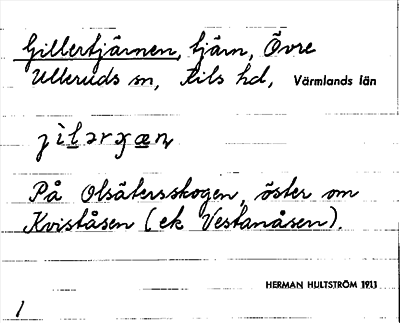 Gillertjärnen, tjärn, Övre
Ulleruds sn, Kils hd, Värmlands län
jìlərχæn
På Olsätersskogen, öster om
Kviståsen (ek Vestanåsen).
HERMAN HULTSTRÖM 1911
1